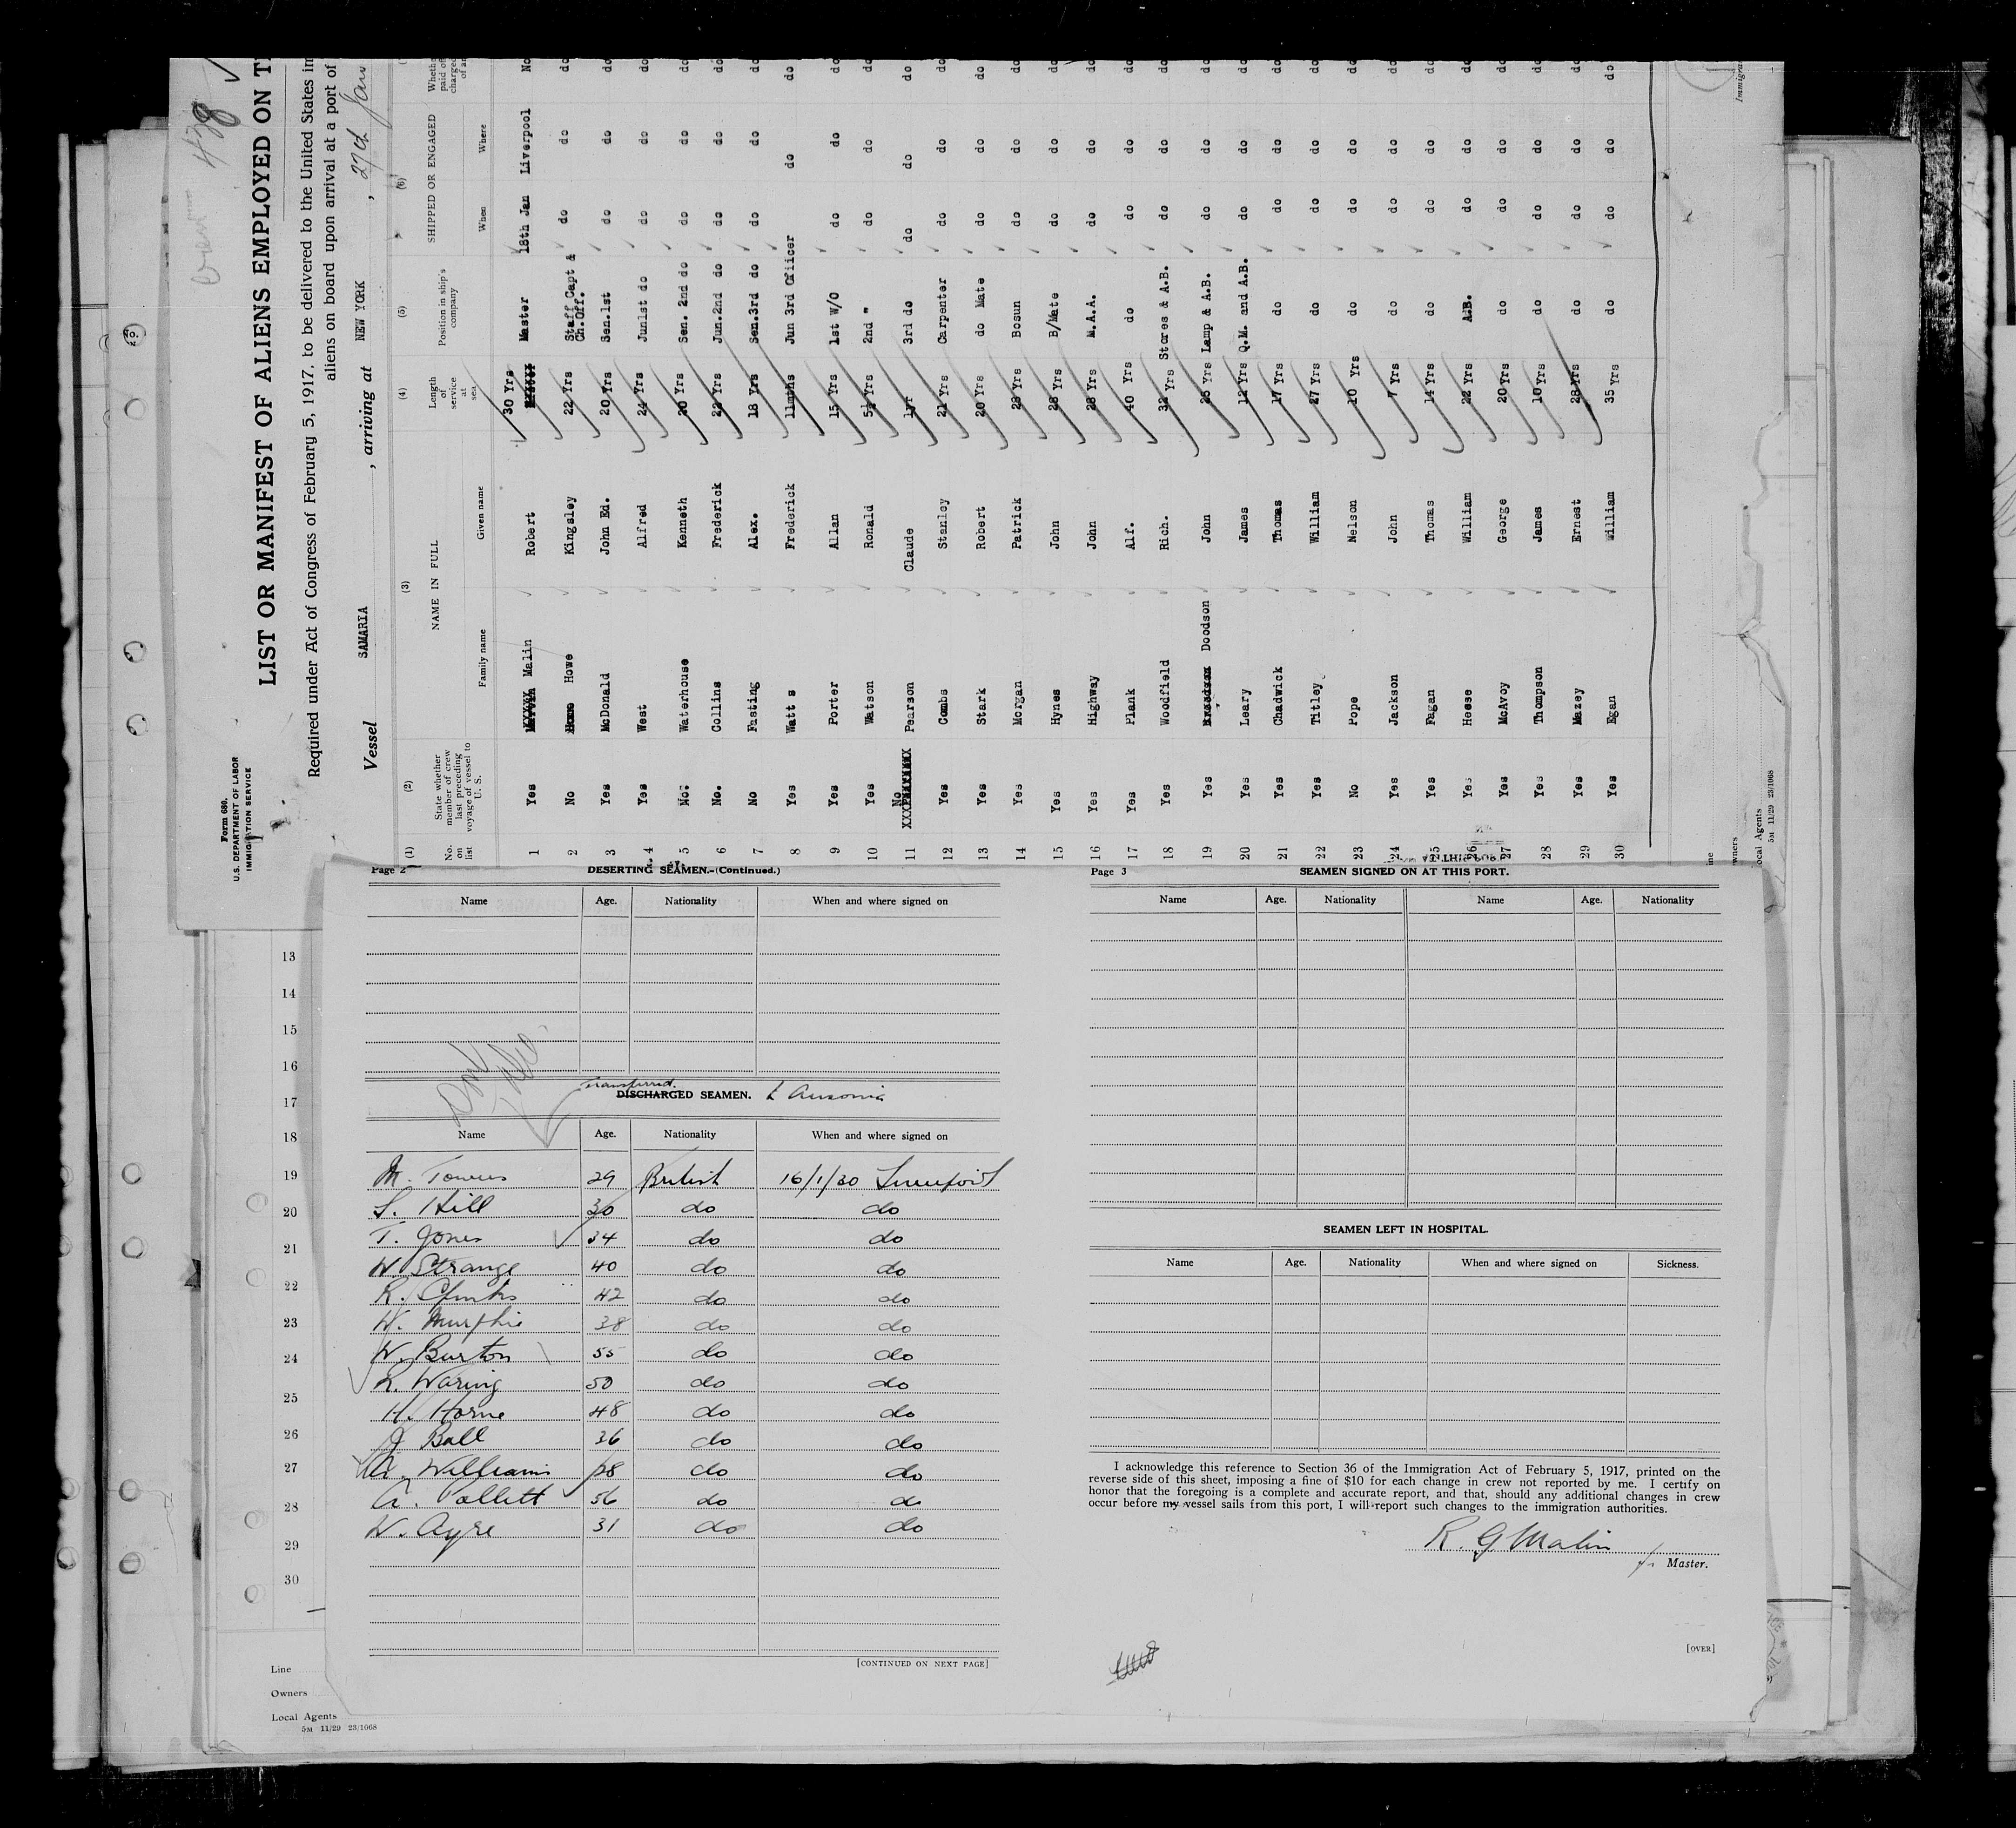 Form 680.
U.S. DEPARTMENT OF LABOR
IMMIGRATION SERVICE
428
LIST OR MANIFEST OF ALIENS EMPLOYED ON T
Required under Act of Congress of February 5, 1917, to be delivered to the United States im
aliens on board upon arrival at a port of
Vessel SAMARIA , arriving at NEW YORK , 27th Jan
(1) (2) (3) (4) (5) (6)
No. on list
State whether member of crew last preceding voyage of vessel to U. S.
NAME IN FULL
Family name Given name
Length of service at sea
Position in ship's company
SHIPPED OR ENGAGED
When Where
Wheth paid of charged of a
1 Yes Malin Robert 30 Yrs Master 18th Jan Liverpool No
2 No Howe Kingsley 22 Yrs Staff Capt & Ch.Off. do do do
3 Yes McDonald John Ed. 20 Yrs Sen.1st do do do
4 Yes West Alfred 24 Yrs Jun1st do do do do
5 No. Waterhouse Kenneth 20 Yrs Sen. 2nd do do do do
6 No. Collins Frederick 22 Yrs Jun.2nd do do do do
7 No Fasting Alex. 18 Yrs Sen.3rd do do do do
8 Yes Watt s Frederick 11mths Jun 3rd Officer do do
9 Yes Porter Allan 15 Yrs 1st W/O do do do
10 Yes Watson Ronald Yrs 2nd " do do do
11 No Pearson Claude 1yr 3rd do do do do
12 Yes Combs Stanley 21 Yrs Carpenter do do do
13 Yes Stark Robert 20 Yrs do Mate do do do
14 Yes Morgan Patrick 28 Yrs Bosun do do do
15 Yes Hynes John 28 Yrs B/Mate do do do
16 Yes Highway John 28 Yrs M.A.A. do do do
17 Yes Plank Alf. 40 Yrs do do do do
18 Yes Woodfield Rich. 32 Yrs Stores & A.B. do do do
19 Yes Doodson John 25 Yrs Lamp & A.B. do do do
20 Yes Leary James 12 Yrs Q.M. and A.B. do do do
21 Yes Chadwick Thomas 17 Yrs do do do do
22 Yes Titley William 27 Yrs do do do do
23 No Pope Nelson 10 Yrs do do do do
24 Yes Jackson John 7 Yrs do do do do
25 Yes Fagan Thomas 14 Yrs do do do do
26 Yes Heese William 22 Yrs A.B. do do do
27 Yes McAvoy George 20 Yrs do do do do
28 Yes Thompson James 10 Yrs do do do do
29 Yes Mazey Ernest 28 Yrs do do do do
30 Yes Egan William 35 Yrs do do do do
Immigra
ine
wners
ocal Agents
5M 11/29 23/1068
Page 2 DESERTING SEAMEN.-(Continued.)
Name Age. Nationality When and where signed on
Transferred.
DISCHARGED SEAMEN. to Ausonia
Name Age. Nationality When and where signed on
M. Towers 29 British 16/1/30 Liverpool
S. Hill 30 do do
T. Jones 34 do do
W. Strange 40 do do
R. 42 do do
W. Murphie 38 do do
W. Burton 55 do do
R. Waring 50 do do
H. Horne 48 do do
J Ball 36 do do
A. Williams 28 do do
A. Pollett 56 do do
W. Ayre 31 do do
[CONTINUED ON NEXT PAGE]
Page 3 SEAMEN SIGNED ON AT THIS PORT.
Name Age. Nationality Name Age. Nationality
SEAMEN LEFT IN HOSPITAL.
Name Age. Nationality When and where signed on Sickness.
I acknowledge this reference to Section 36 of the Immigration Act of February 5, 1917, printed on the
reverse side of this sheet, imposing a fine of $10 for each change in crew not reported by me. I certify on
honor that the foregoing is a complete and accurate report, and that, should any additional changes in crew
occur before my vessel sails from this port, I will report such changes to the immigration authorities.
R. G Malin
Master.
[OVER]
13
14
15
16
17
18
19
20
21
22
23
24
25
26
27
28
29
30
Line
Owners
Local Agents
5M 11/29 23/1068